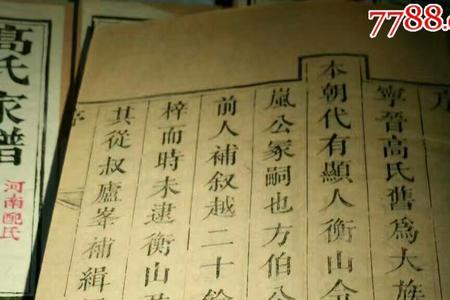 7788.c
高氏家譜
河南配氏
序
寧晉高氏舊為大族
本朝代有顯人衡山令
嵐公冢嗣也方伯公
前人補叙越二十餘
梓而時未逮衡山
其從叔廬峯補緝
序